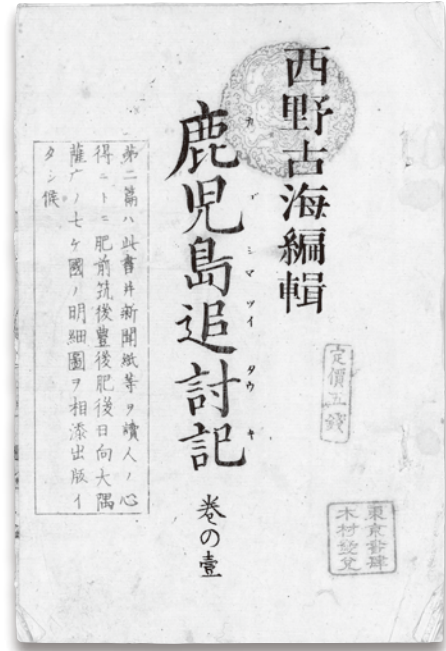 西野古海編輯
鹿児島追討記
カゴシマツイタウキ
巻の壹
定價五錢
東京書肆
木村發兌
第二篇ハ此書并新聞紙等ヲ讀人ノ心
得ニトニ肥前筑後豊後肥後日向大隅
薩广ノ七ケ國ノ明細圖ヲ相添出版イ
タシ候